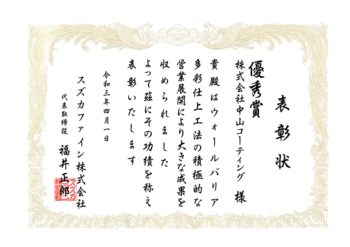 表彰状
優秀賞
株式会社中山コーティング 様
貴殿はウォールバリア
多彩仕上工法の積極的な
営業展開により大きな成果を
収められました
よって茲にその功績を称え
表彰いたします
令和三年四月一日
スズカファイン株式会社
代表取締役 福井正郎